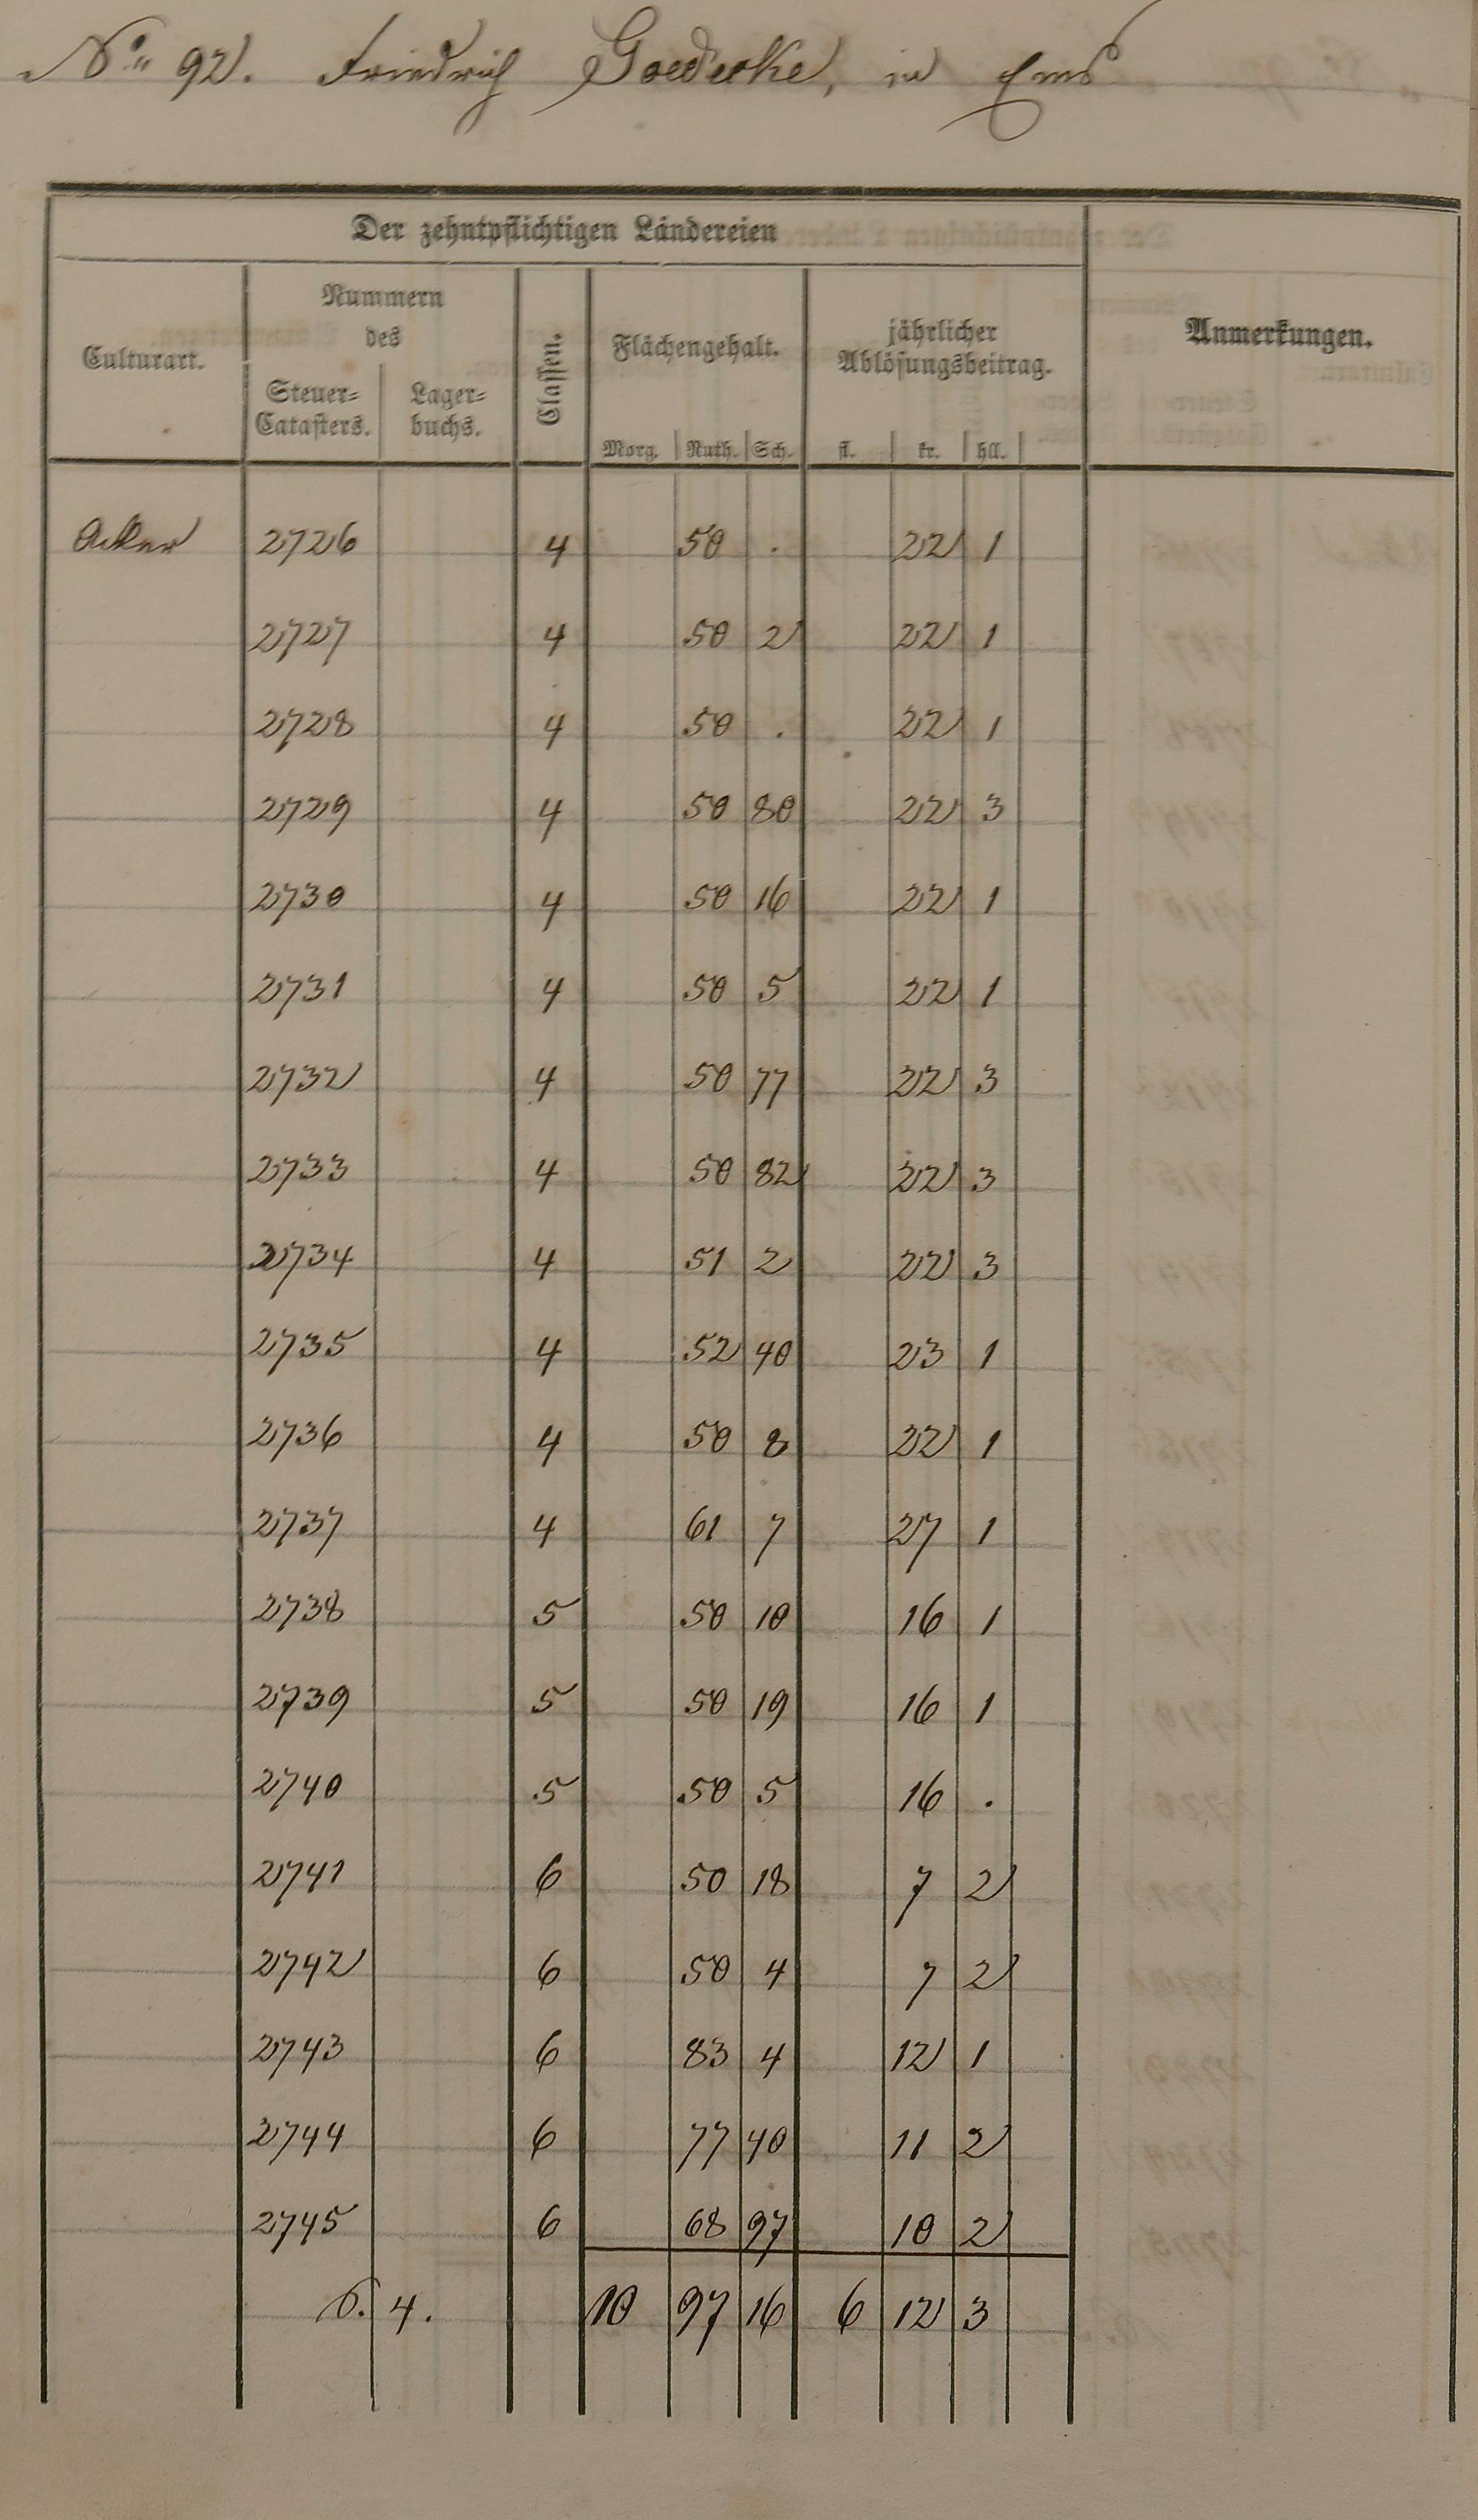 No. 92. Friedrich Goedecke, in Ems
Der zehntpflichtigen Ländereien
Culturart.
Nummern
des
Steuer=
Catasters.
Lager=
buchs.
Classen.
Flächengehalt.
Morg. Ruth. Sch.
jährlicher
Ablösungsbeitrag.
fl. kr. hll.
Anmerkungen.
Acker 2726 4 50 . 22 1
2727 4 50 2 22 1
2728 4 50 . 22 1
2729 4 50 80 22 3
2730 4 50 16 22 1
2731 4 50 5 22 1
2732 4 50 77 22 3
2733 4 50 82 22 3
2734 4 51 2 22 3
2735 4 52 40 23 1
2736 4 50 8 22 1
2737 4 61 7 27 1
2738 5 50 10 16 1
2739 5 50 19 16 1
2740 5 50 5 16 .
2741 6 50 18 7 2
2742 6 50 4 7 2
2743 6 83 4 12 1
2744 6 77 40 11 2
2745 6 68 97 10 2
S. 4. 10 97 16 6 12 3